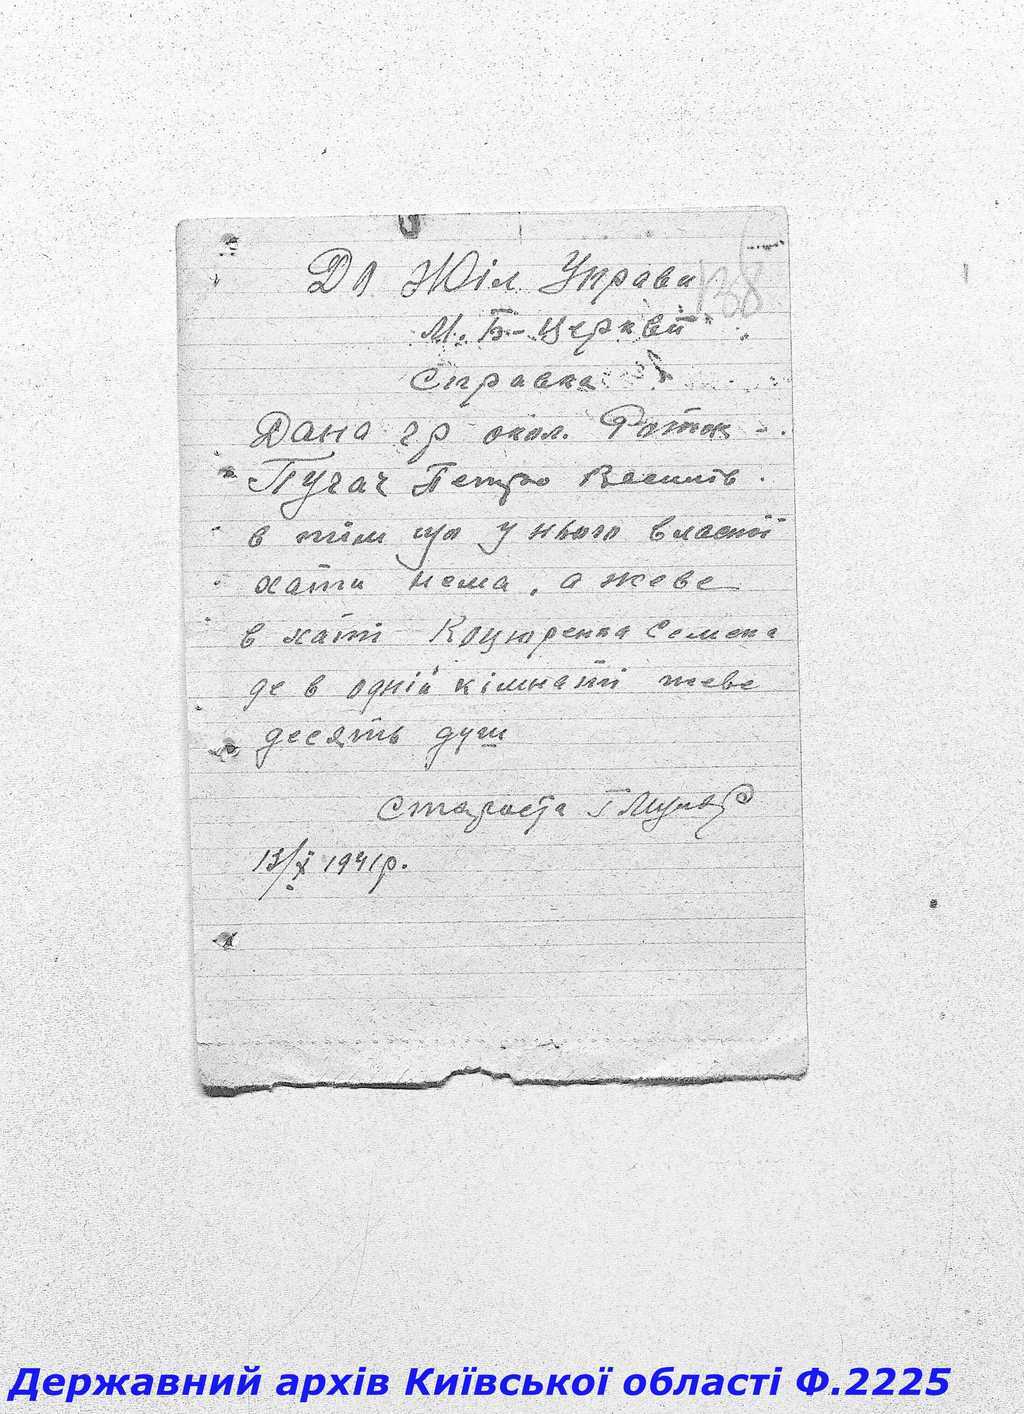 До Жіл Управи
138
М. Б-Церкви
Справка
Дана гр окол. Роток
Пугач Петро Василів.
в тім що у нього власної
хати нема, а жеве
в хаті Коцюренка Семена
де в одній кімнаті жеве
десять душ
Староста
13/X 1941р.
Державний архів Київської області Ф.2225